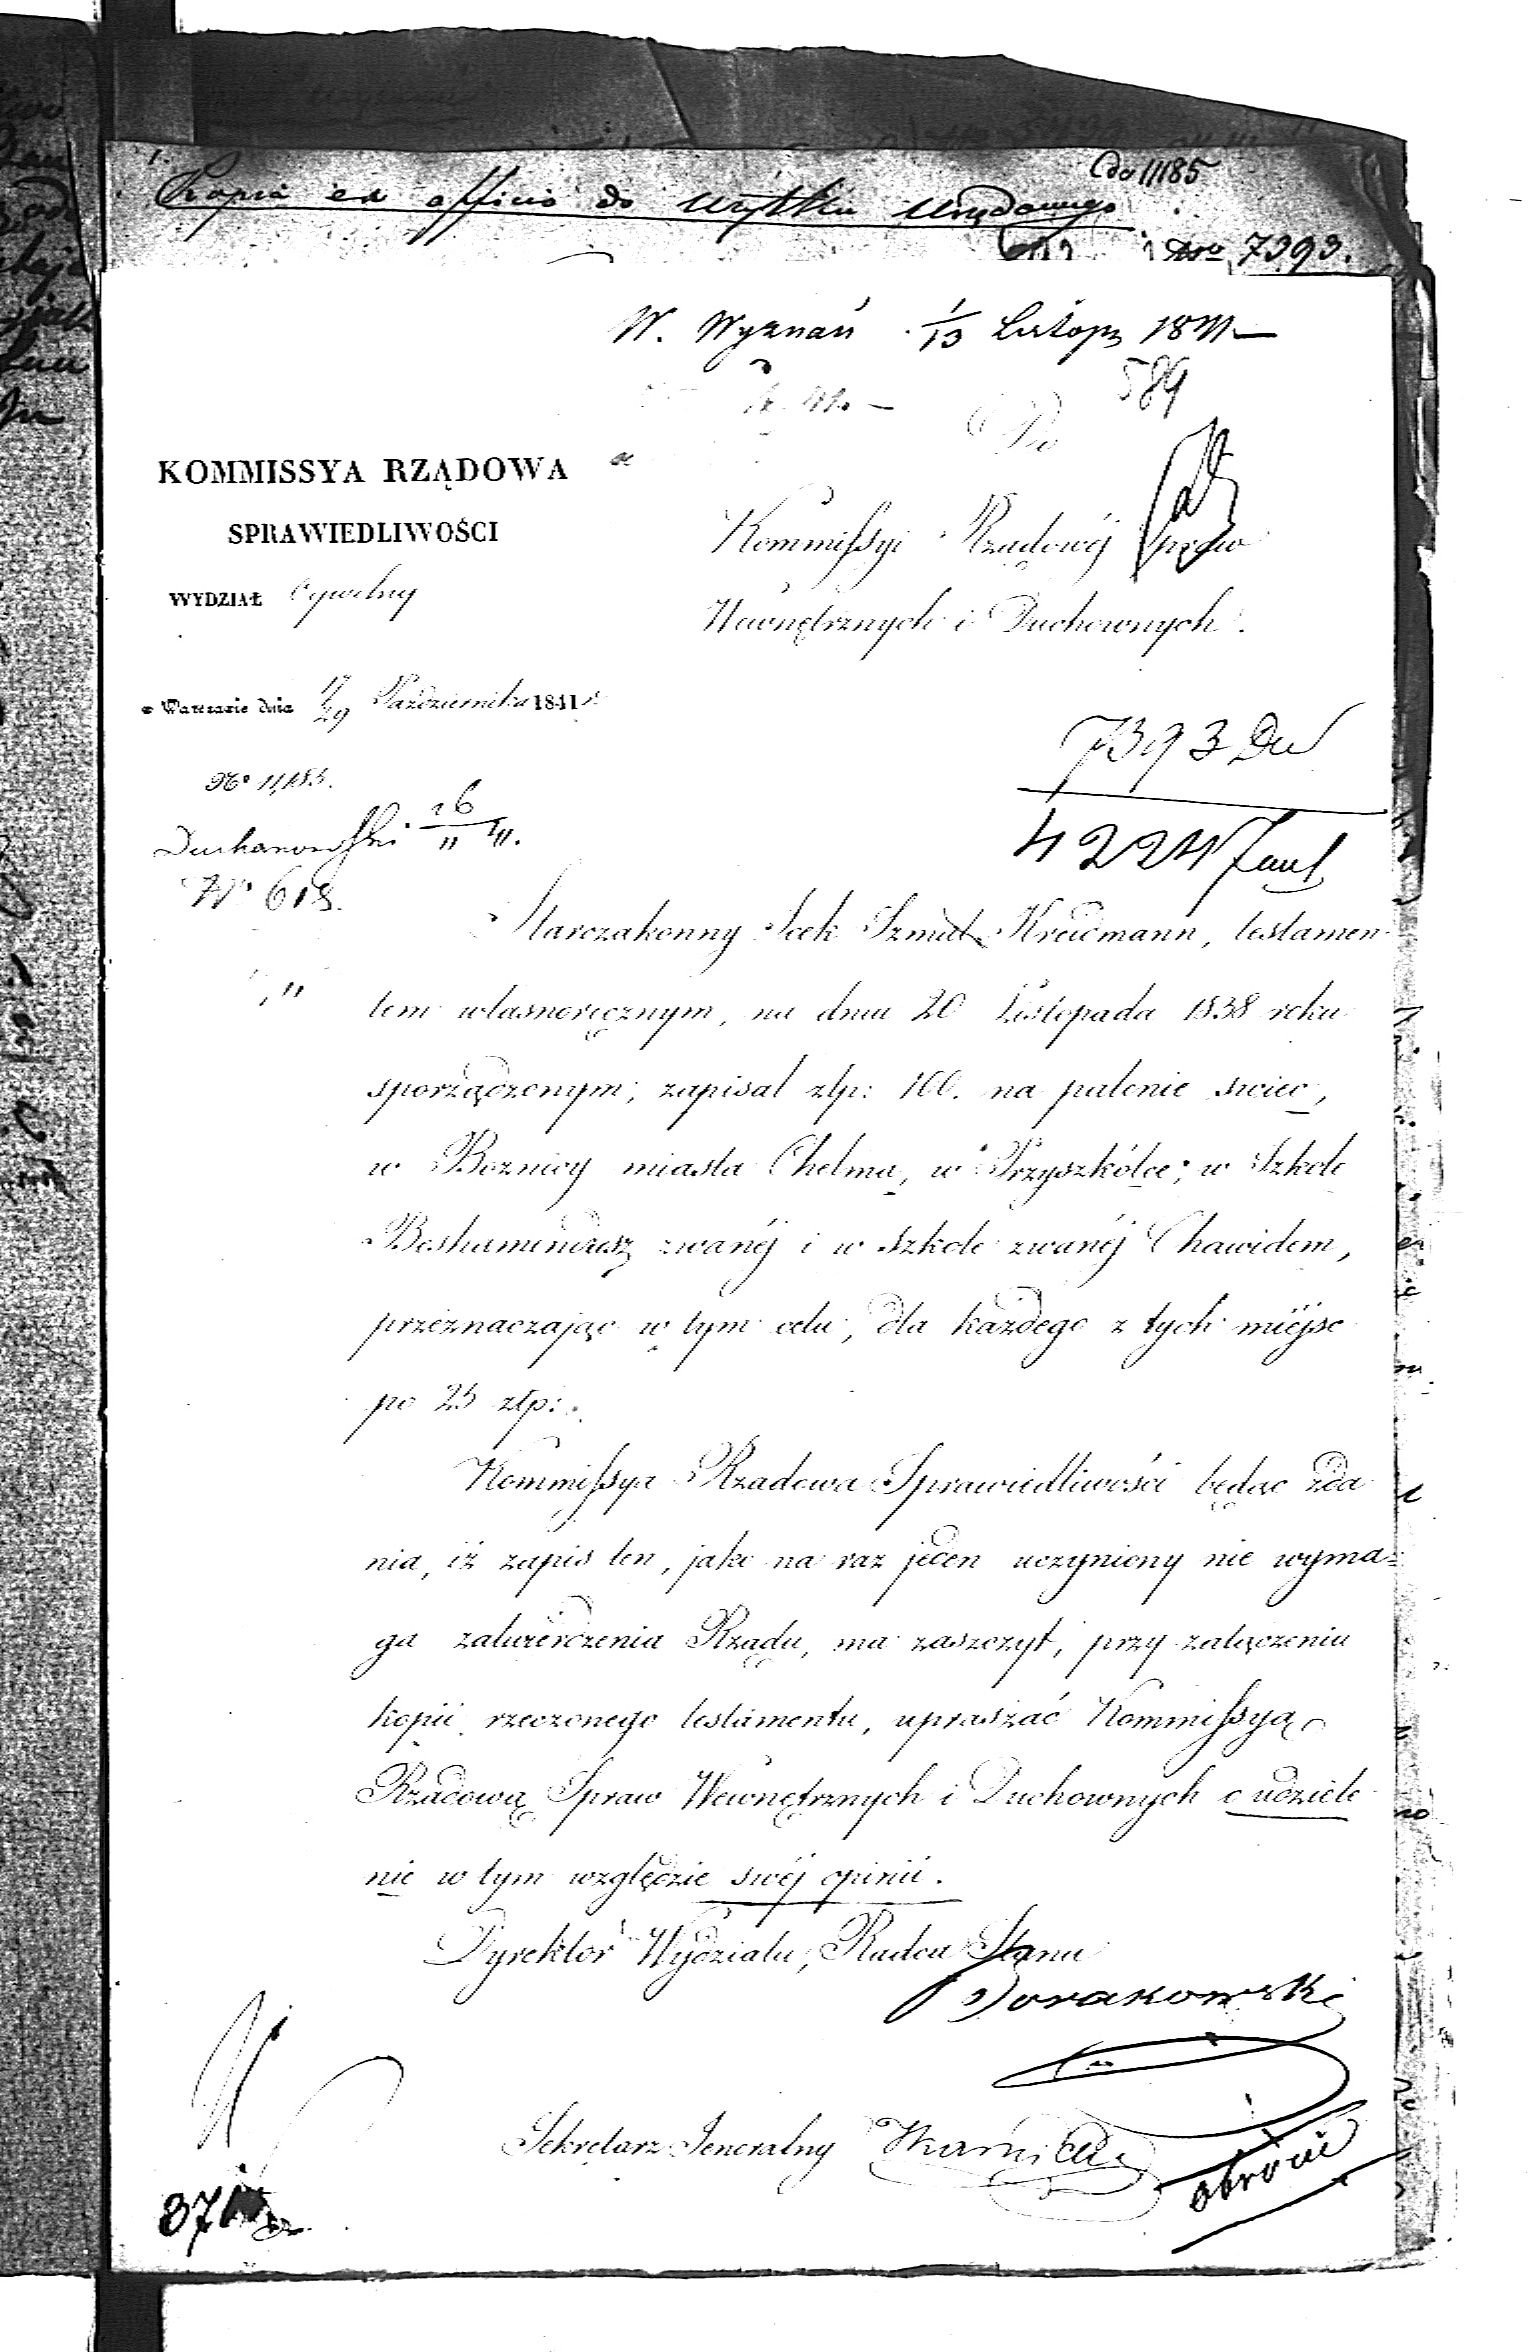 do 11185
Kopia ex officio do użytku urzędowego
Nro 7393.
W. Wyznań 1/13 Listop 1841
589
Do
KOMMISSYA RZĄDOWA
SPRAWIEDLIWOŚCI
Kommissyi Rządowéj Spraw
WYDZIAŁ Cywilny
Wewnętrznych i Duchownych.
w Warszawie dnia 17/29 Października 1841 r.
7393 Du
No 11,185.
26/11 41.
4224
No 618.
Starozakonny Icek Szmul Kreidmann, testamen-
tem własnoręcznym, na dniu 20 Listopada 1838 roku
sporządzonym, zapisał złp: 100. na palenie swiec,
w Boznicy miasta Chełma, w "Przyszkółce", w Szkole
Beshamindrasz zwanéj i w szkole zwanéj Chawidem,
przeznaczając w tym celu, dla każdego z tych miéjsc
po 25 złp:
Kommissya Rządowa Sprawiedliwości będąc zda
nia, iż zapis ten, jako na raz jeden uczyniony nie wyma=
ga zatwierdzenia Rządu, ma zaszczyt, przy załączeniu
kopii rzeczonego testamentu, upraszać Kommissyą
Rządową Spraw Wewnętrznych i Duchownych o udziele
nie w tym względzie swéj opinii.
Dyrektor Wydziału, Radca Stanu
Sekretarz Jeneralny
obrócić